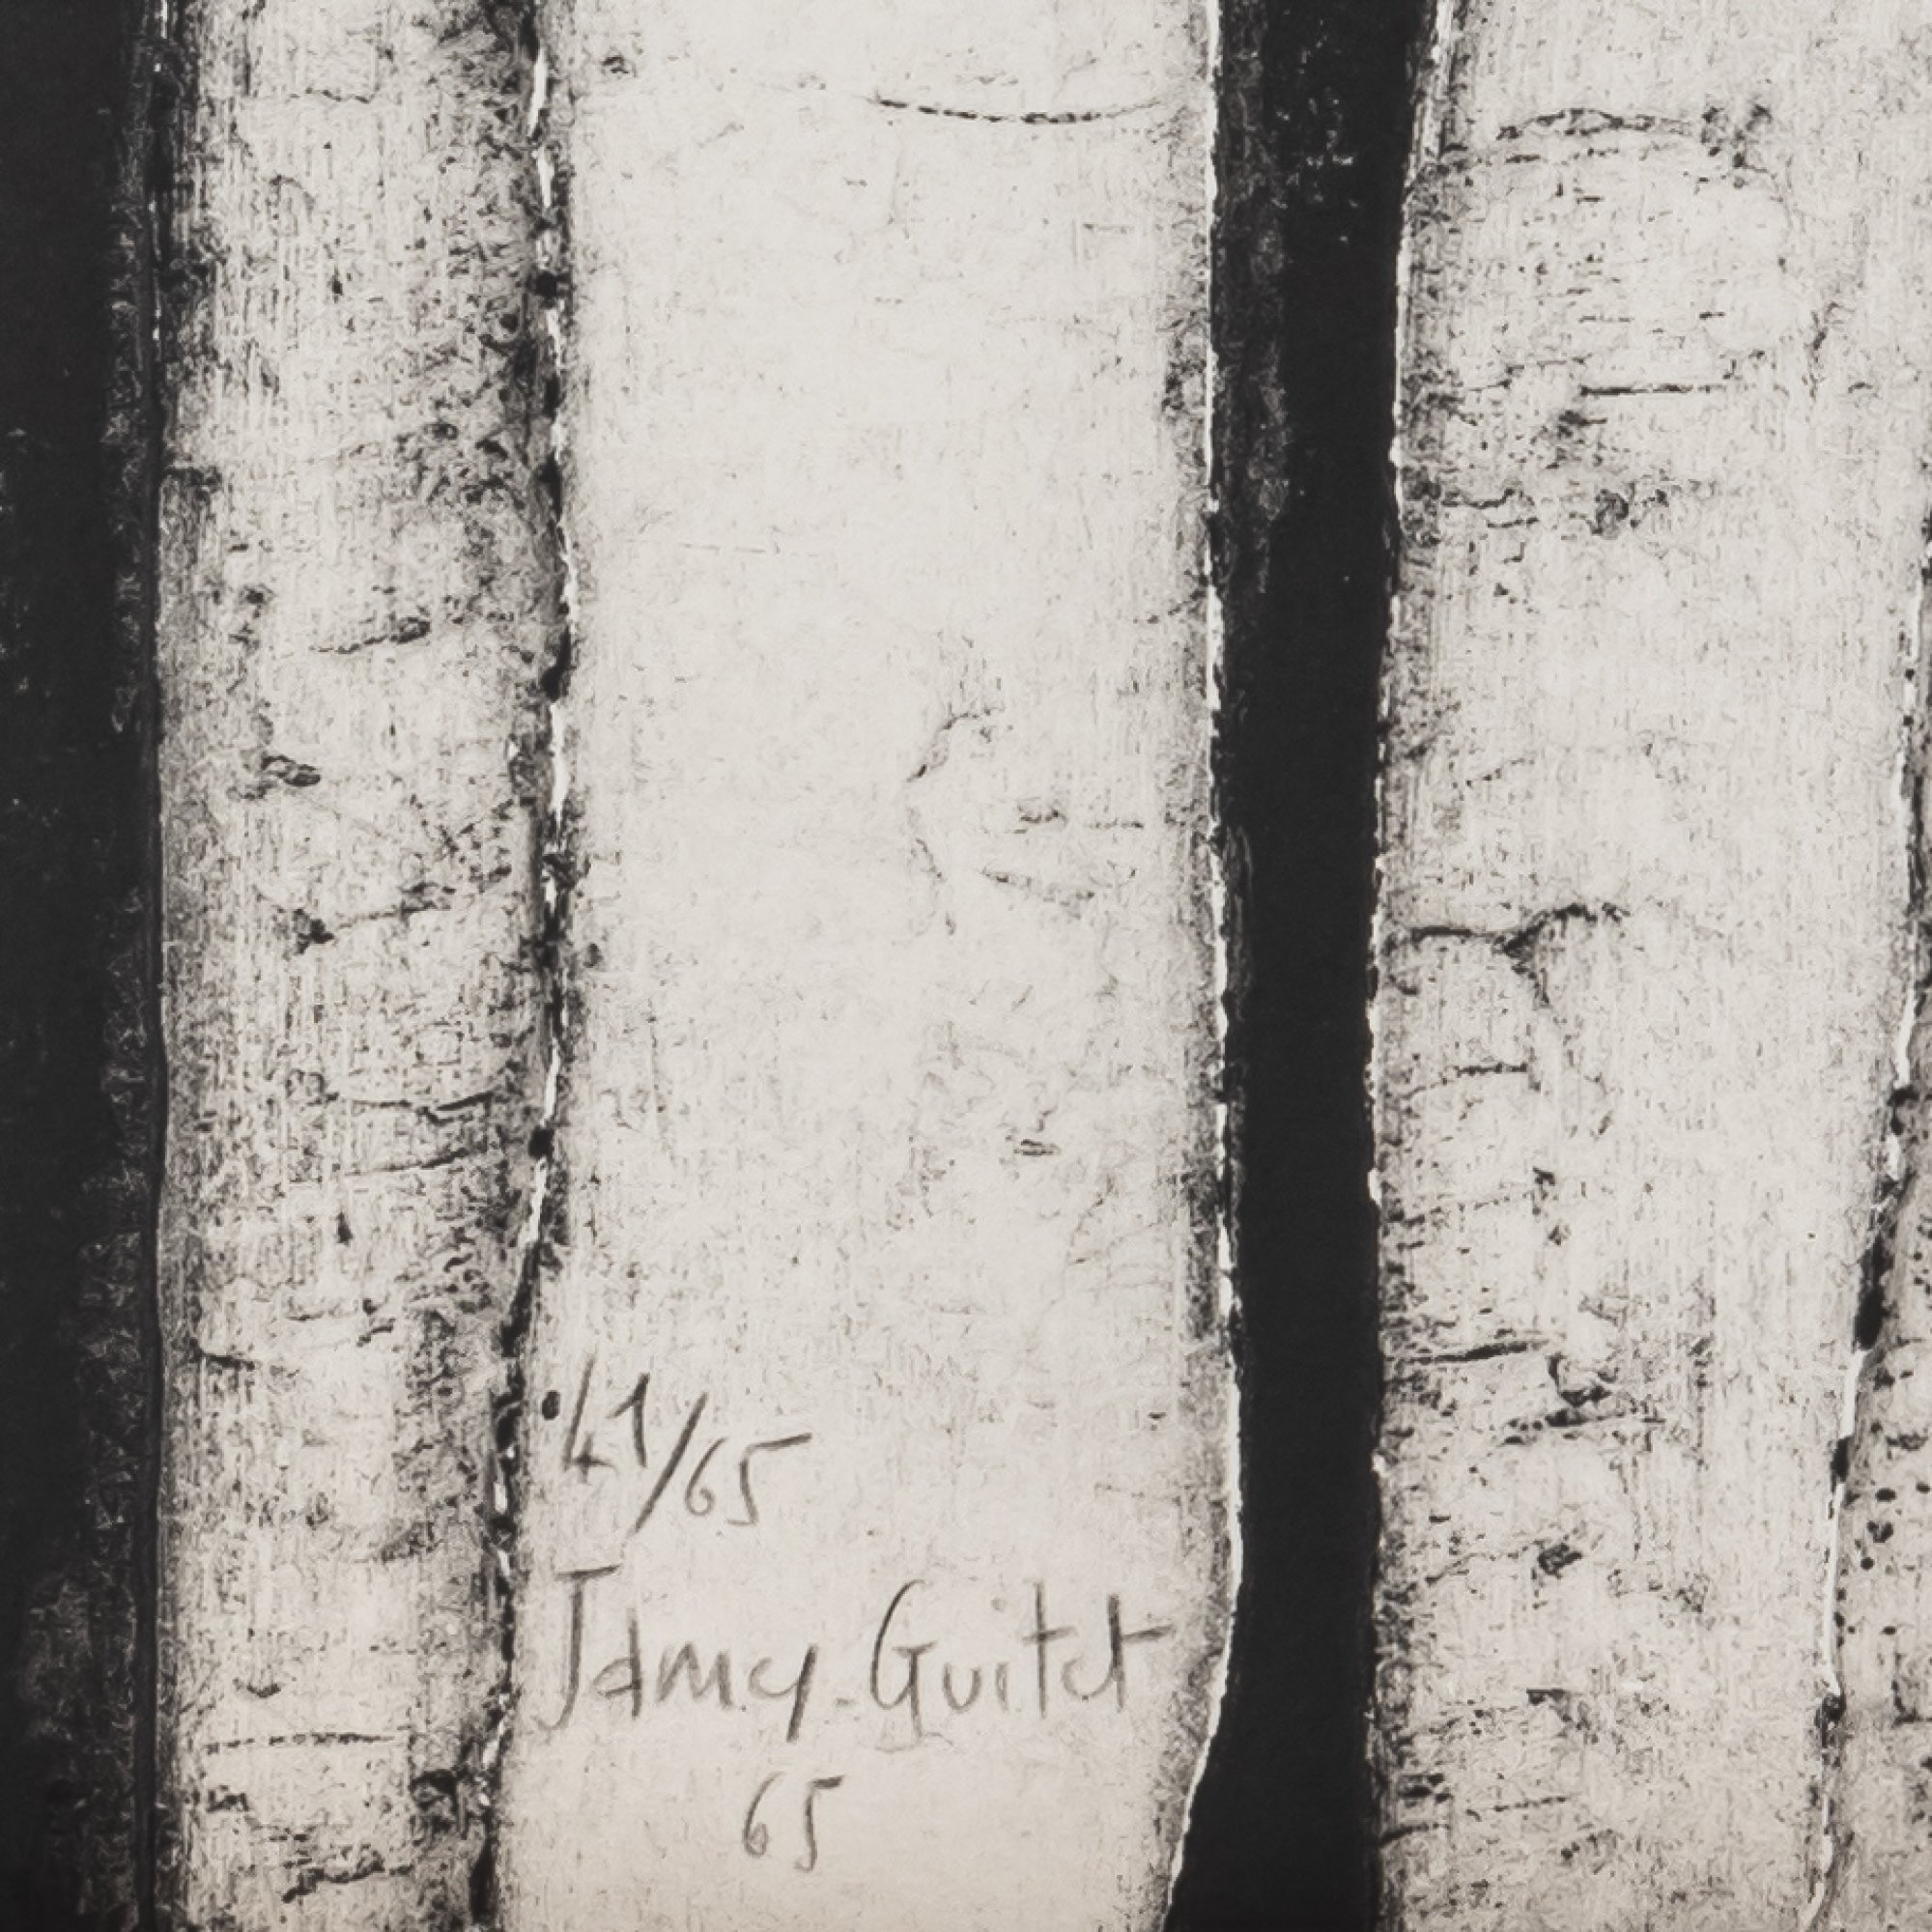 41/65
James-Guitet
65